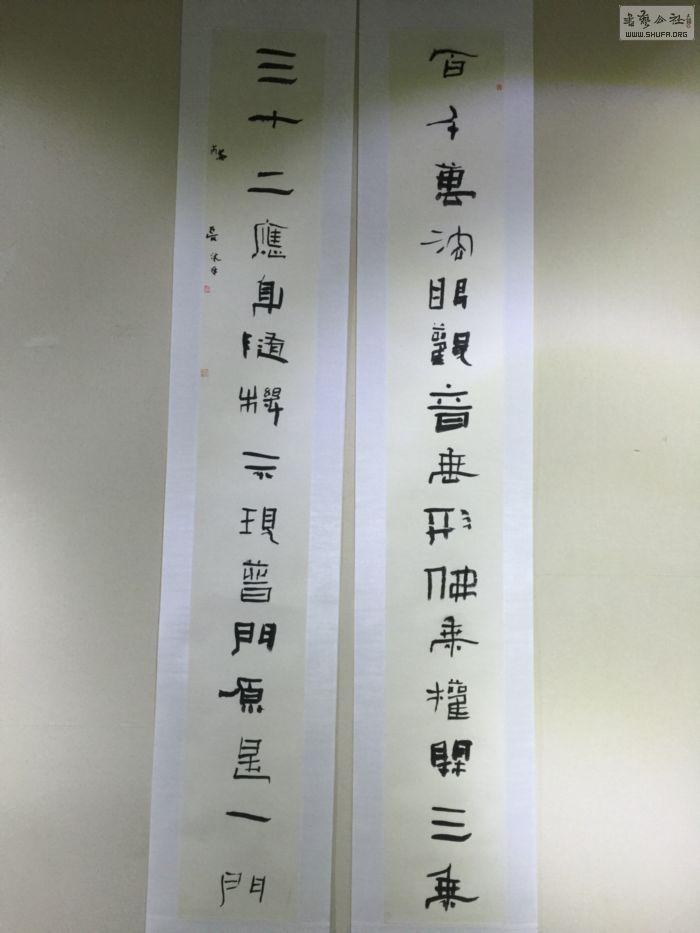 百千萬法眼觀音垂形佛乘權開三乘
三十二應身隨機示現普門原是一門
書藝公社
WWW.SHUFA.ORG